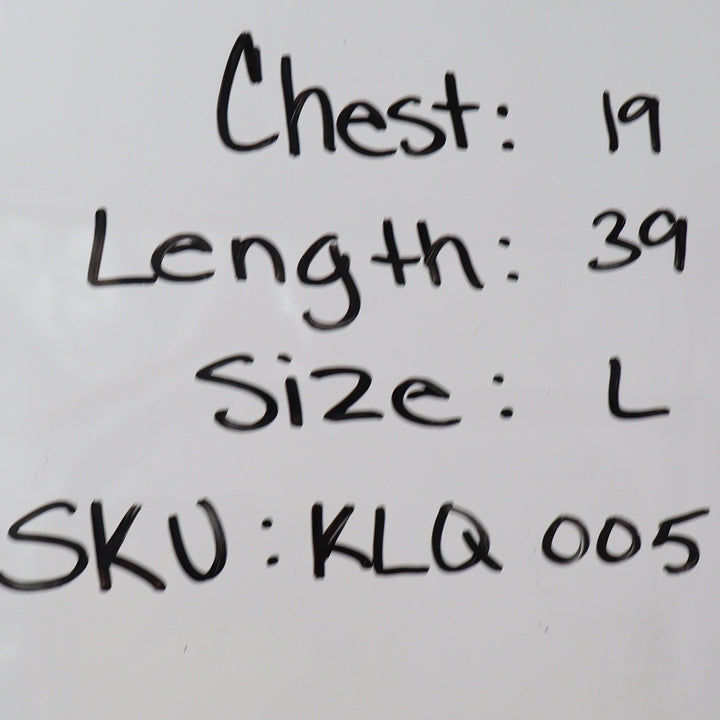 Chest: 19
Length: 39
Size: L
SKU: KLQ 005